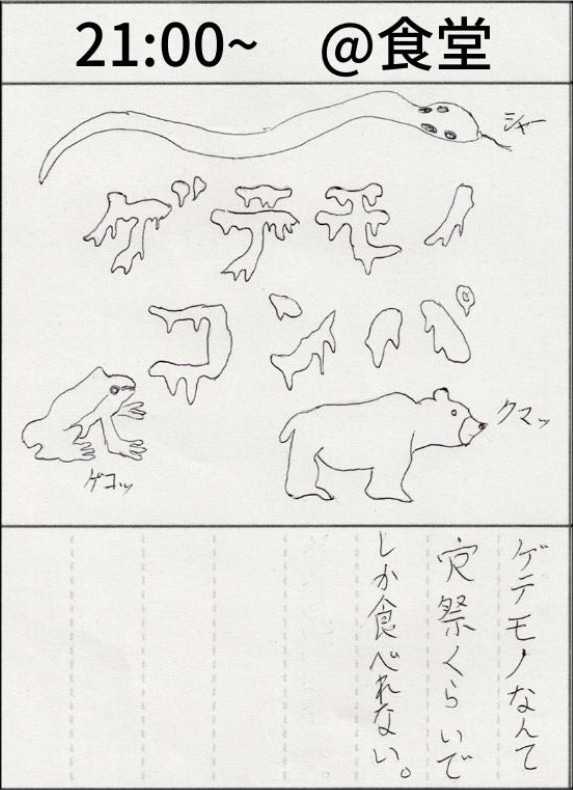 21:00~ @食堂
シャー
ゲテモノ
コンパ
クマッ
ゲコッ
ゲテモノなんて
穴祭くらいで
しか食べれない。